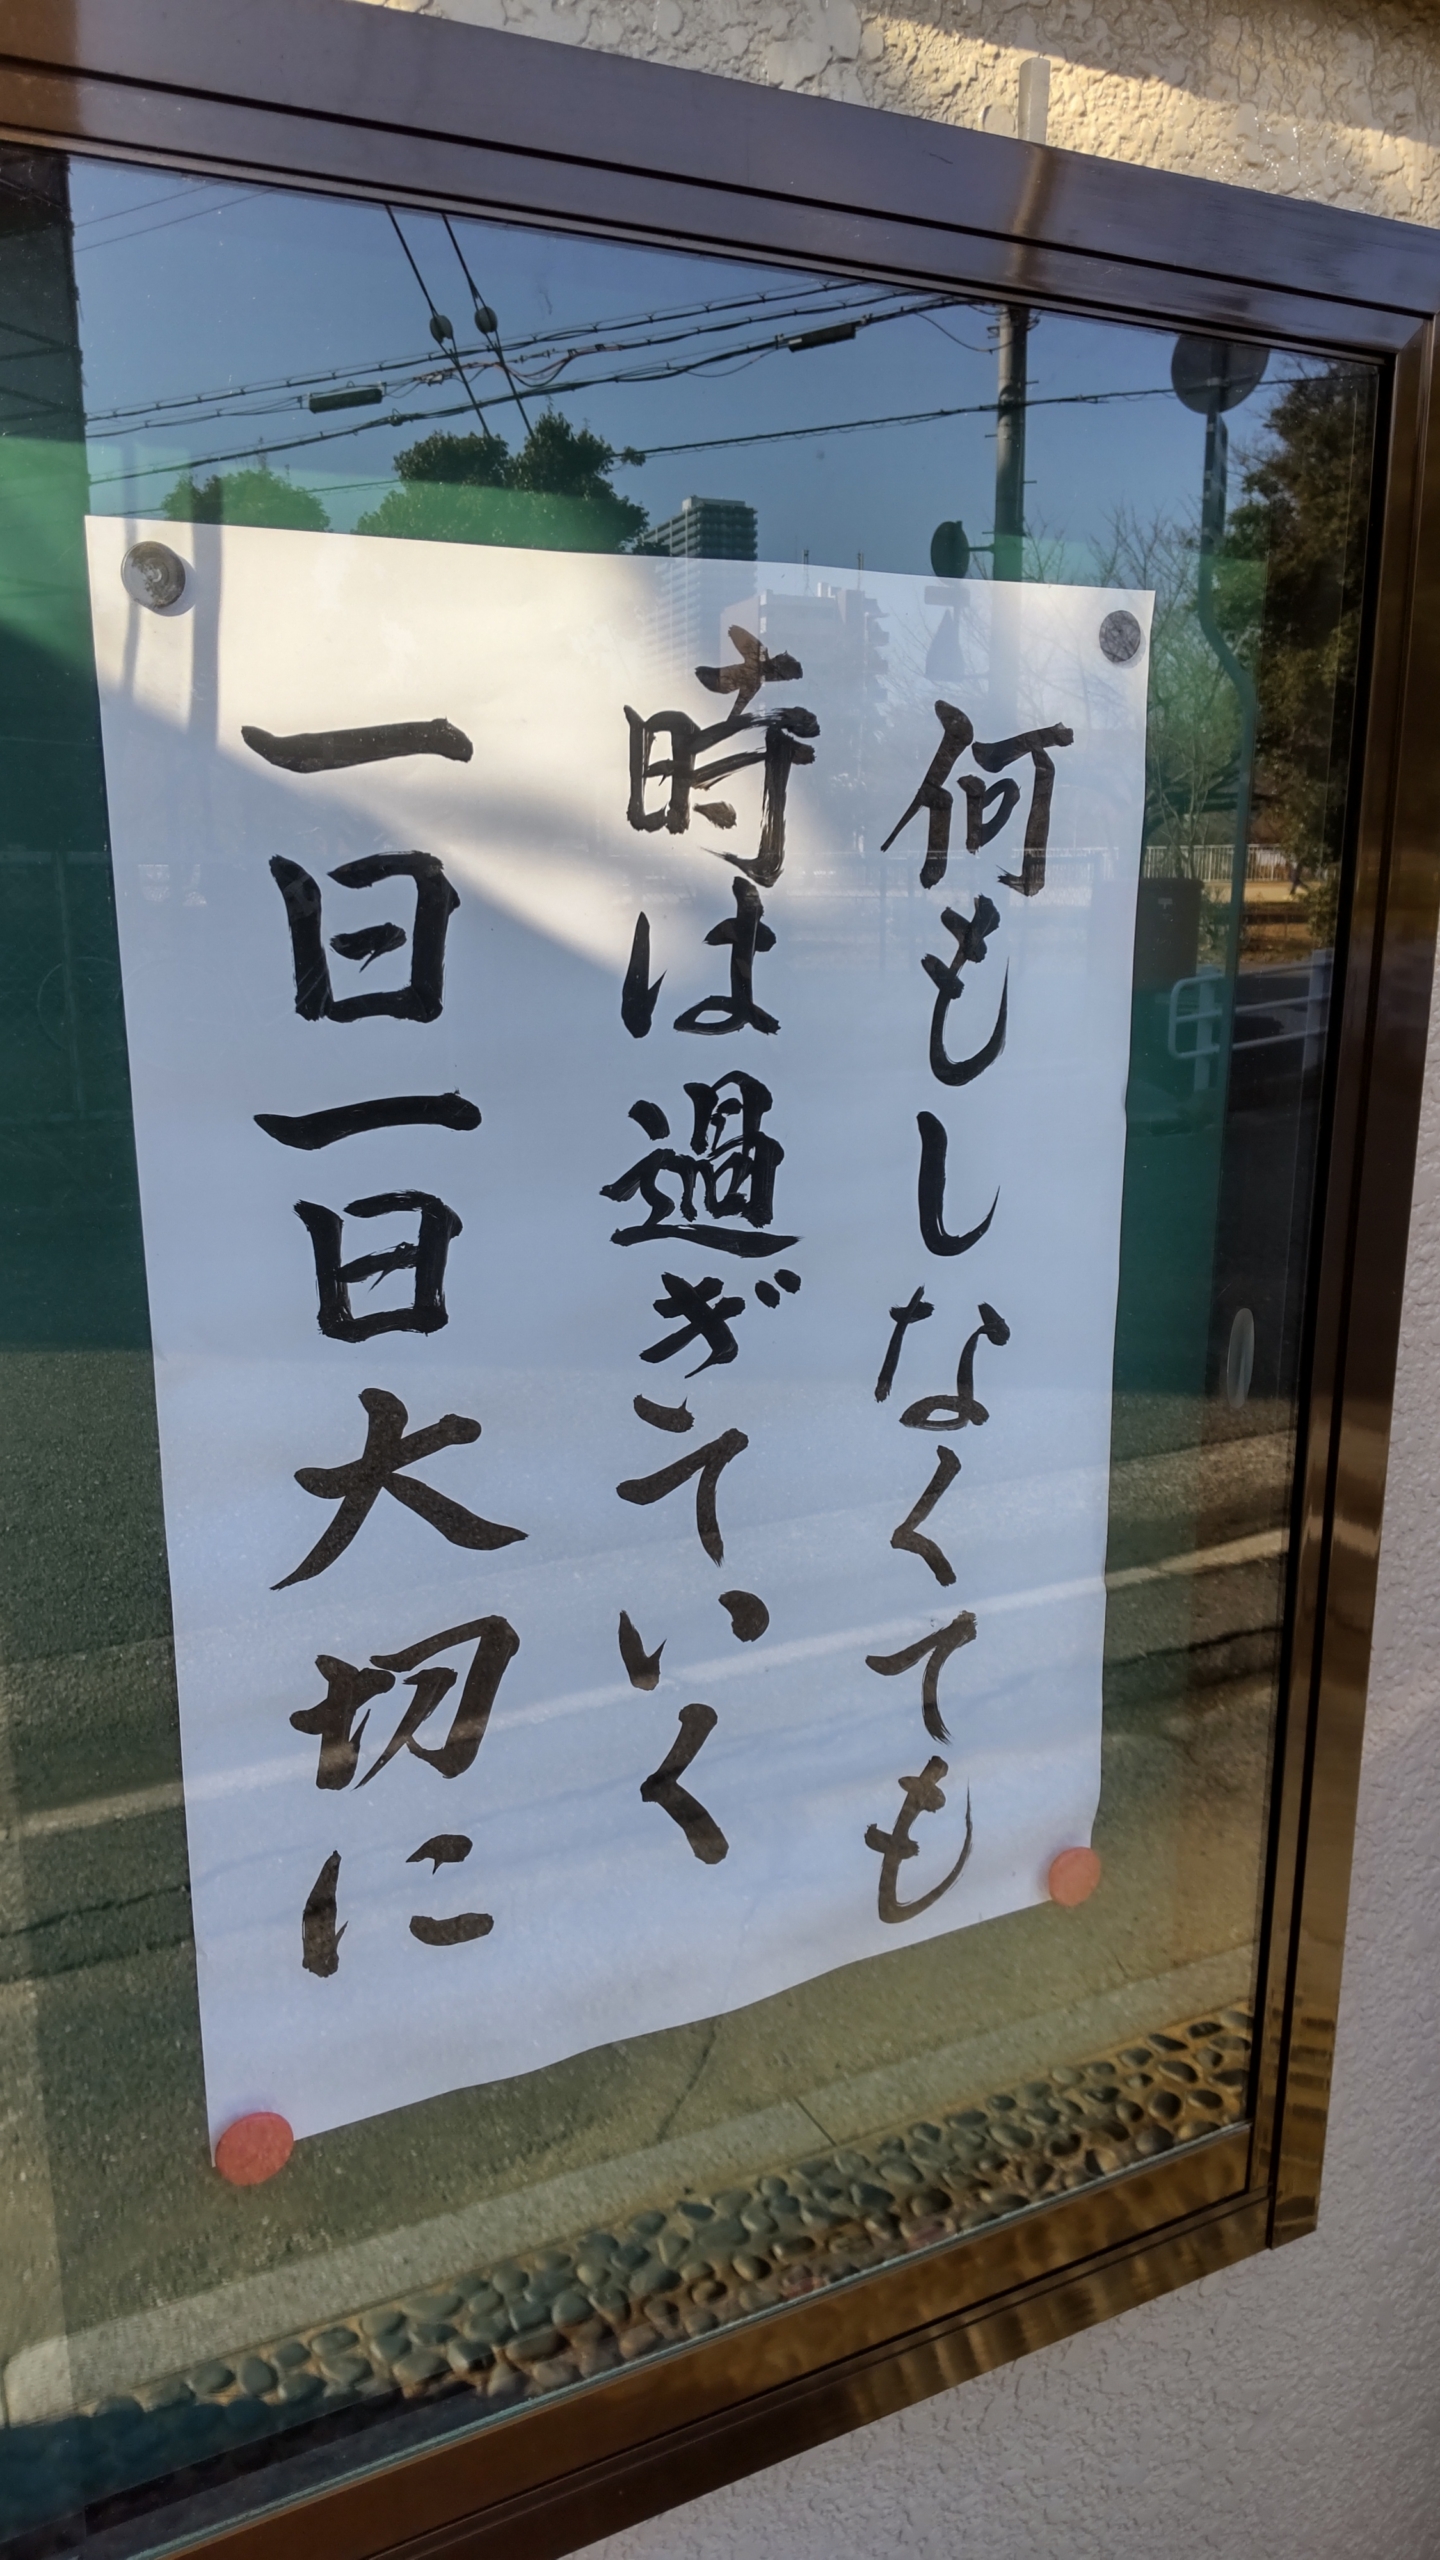 何もしなくても
時は過ぎていく
一日一日大切に